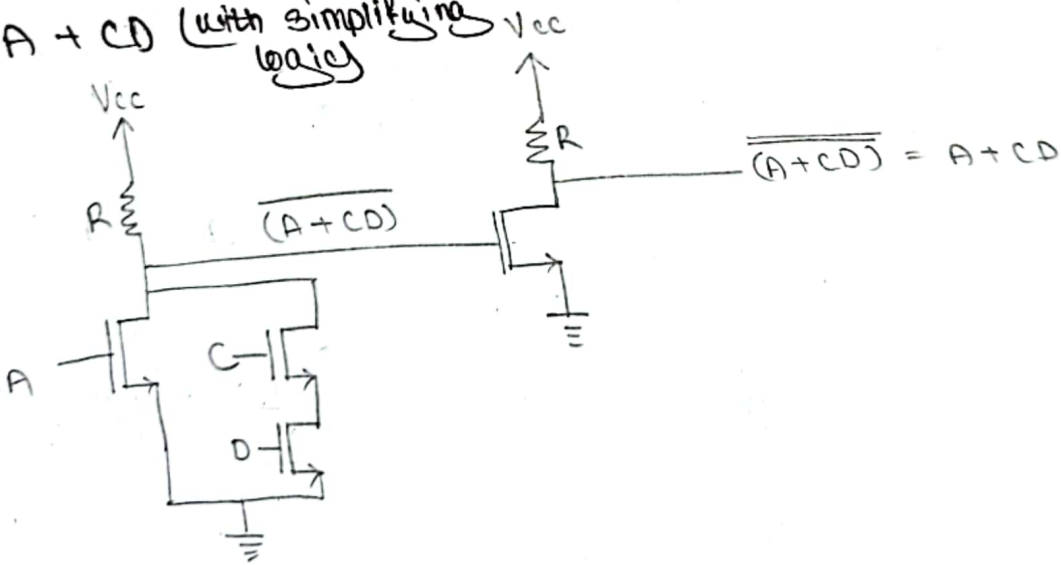 A + CD (with simplifying
logic)
Vcc
Vcc
R
R
(A+CD)‾
(A+CD)‾‾ = A + CD
A
C
D